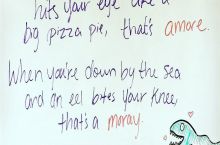 hits your eye like a
big pizza pie, that's amore.
When you're down by the sea
and an eel bites your knee,
that's a moray.